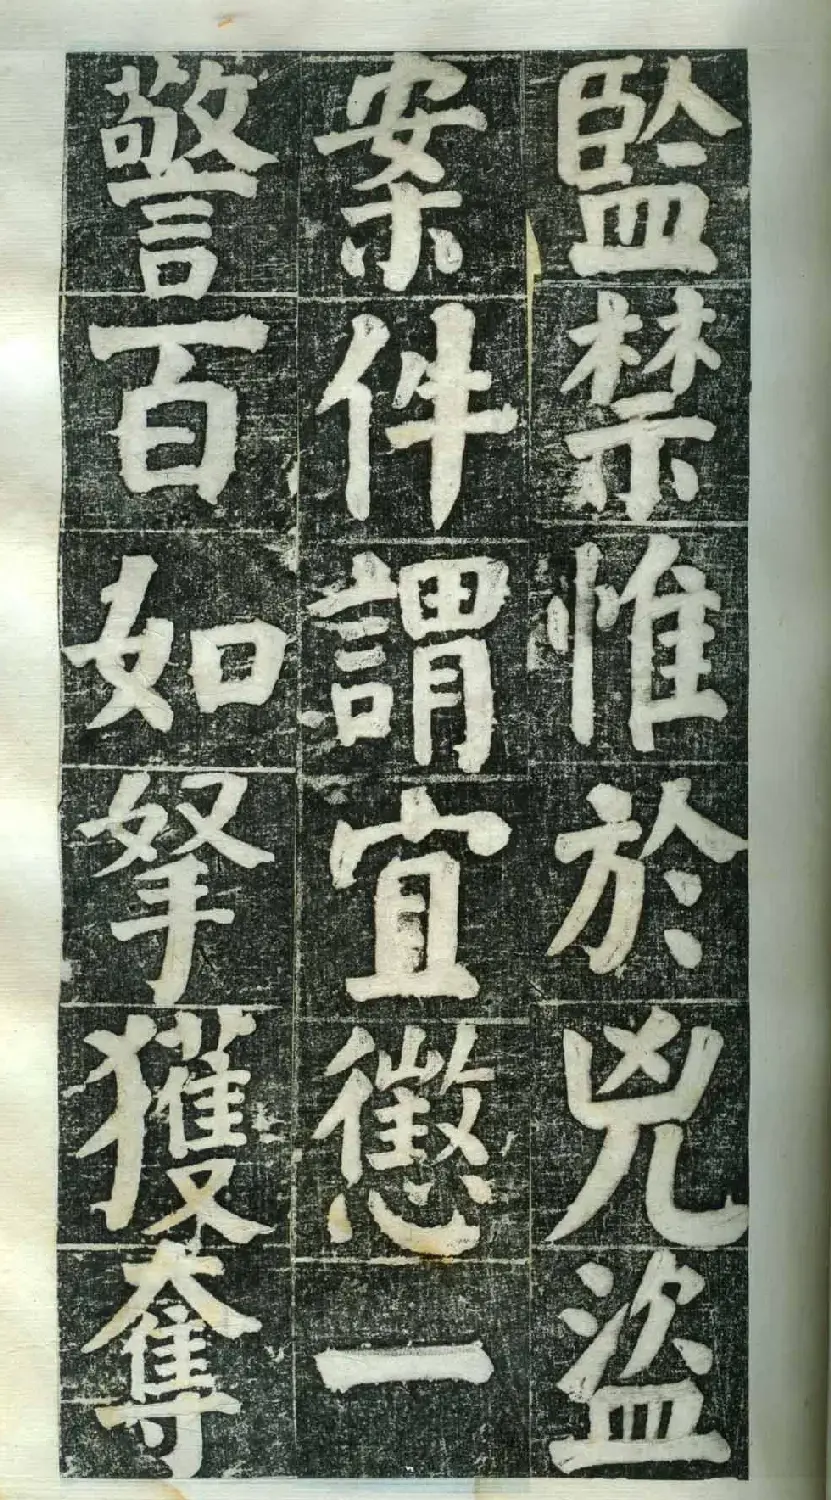 監禁惟於兇盜
案件謂宜懲一
警百如拏獲奪